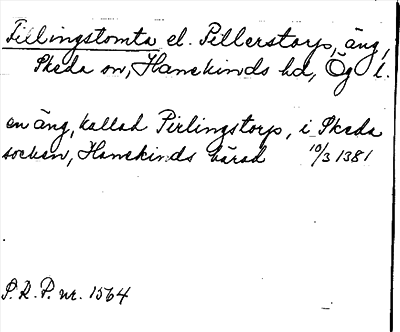 Tillingstomta el. Pillerstorp, äng,
Skeda sn, Hanekinds hd, Ög l.
en äng, kallad Pirlingstorp, i Skeda
socken, Hanekinds härad 10/3 1381
S.R.P. nr. 1564